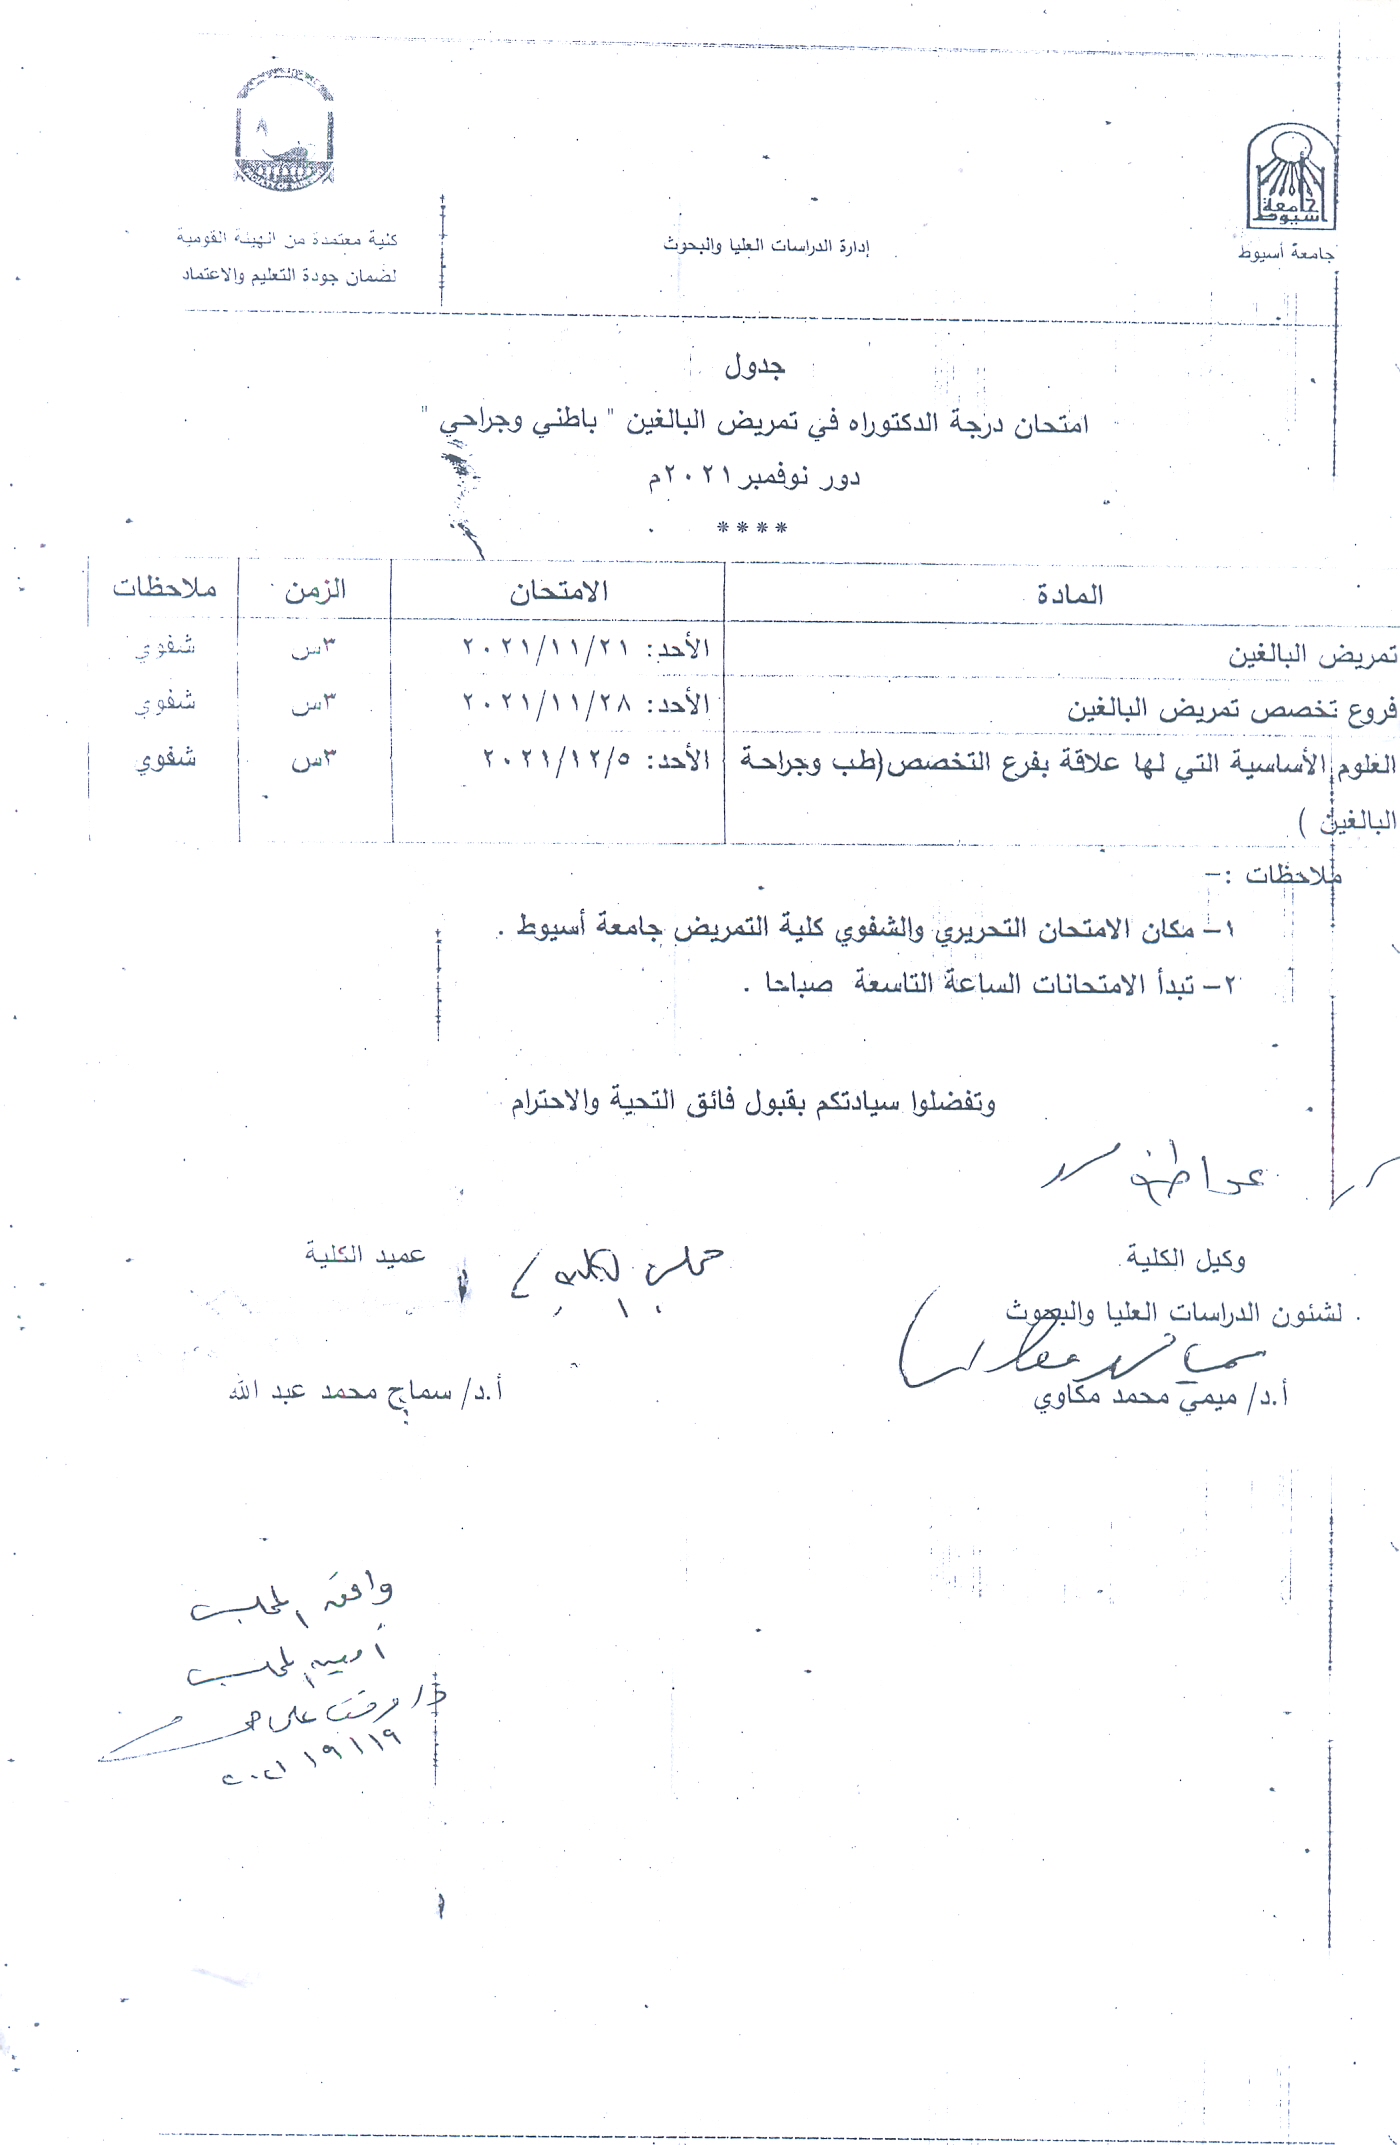 جامعة أسيوط
جامعة أسيوط
إدارة الدراسات العليا والبحوث
كلية معتمدة من الهيئة القومية
لضمان جودة التعليم والاعتماد
جدول
امتحان درجة الدكتوراه في تمريض البالغين " باطني وجراحي "
دور نوفمبر ٢٠٢١م
****
المادة الامتحان الزمن ملاحظات
تمريض البالغين الأحد: ٢٠٢١/١١/٢١ ٣س شفوي
فروع تخصص تمريض البالغين الأحد: ٢٠٢١/١١/٢٨ ٣س شفوي
العلوم الأساسية التي لها علاقة بفرع التخصص(طب وجراحة الأحد: ٢٠٢١/١٢/٥ ٣س شفوي
البالغين )
ملاحظات :-
١- مكان الامتحان التحريري والشفوي كلية التمريض جامعة أسيوط .
٢- تبدأ الامتحانات الساعة التاسعة صباحا .
وتفضلوا سيادتكم بقبول فائق التحية والاحترام
عواطف
وكيل الكلية
مجلس الكلية
عميد الكلية
لشئون الدراسات العليا والبحوث
أ.د/ ميمي محمد مكاوي
أ.د/ سماح محمد عبد الله
وافق المجلس
أمين المجلس
د/ مرفت على